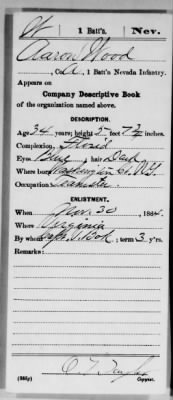 W | 1 Batt's. | Nev.
Aaron Wood
, Co. A, 1 Batt's Nevada Infantry.
Appears on
Company Descriptive Book
of the organization named above.
DESCRIPTION.
Age 34 years; height 5 feet 7 ½ inches.
Complexion Florid
Eyes Blue, hair Dark
Where born Washington Co. N.Y.
Occupation Teamster
ENLISTMENT.
When Nov. 30, 1864.
Where Virginia
By whom Capt. ; term 3 y'rs.
Remarks:
(383g) Copyist.